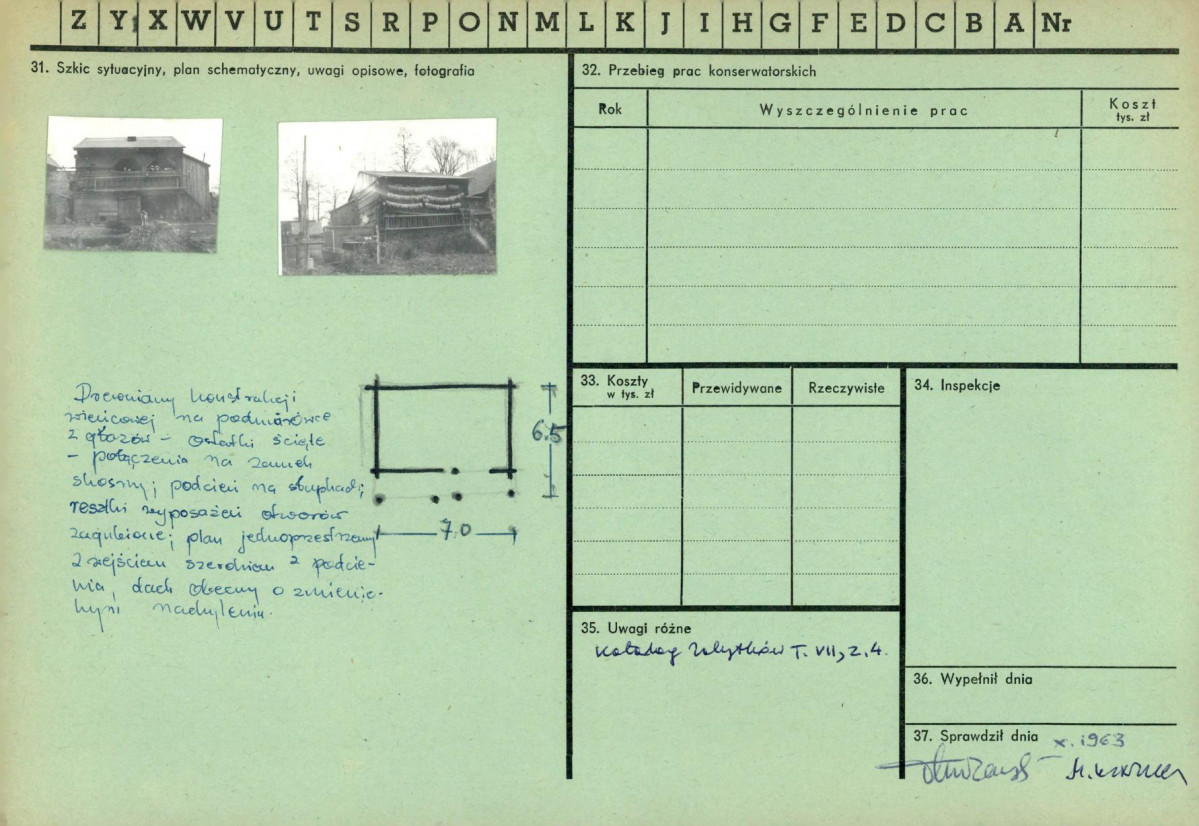 Z Y X W V U T S R P O N M L K J I H G F E D C B A Nr
31. Szkic sytuacyjny, plan schematyczny, uwagi opisowe, fotografia
Drewniany konstrukcji
wieńcowej na podmurówce
z głazów – ostatki ścięte
– połączenia na zamek
skośny; podcień na słupkach;
resztki wyposażeń otworów
zagubione; plan jednoprzestrzenny
z wejściem szerokim z podcie-
nia, dach obecny o zmienio-
nym nachyleniu.
6.5
7.0
32. Przebieg prac konserwatorskich
Rok
Wyszczególnienie prac
Koszt
tys. zł
33. Koszty
w tys. zł
Przewidywane
Rzeczywiste
34. Inspekcje
35. Uwagi różne
Katalog Zabytków T. VII, z. 4.
36. Wypełnił dnia
37. Sprawdził dnia x. 1963